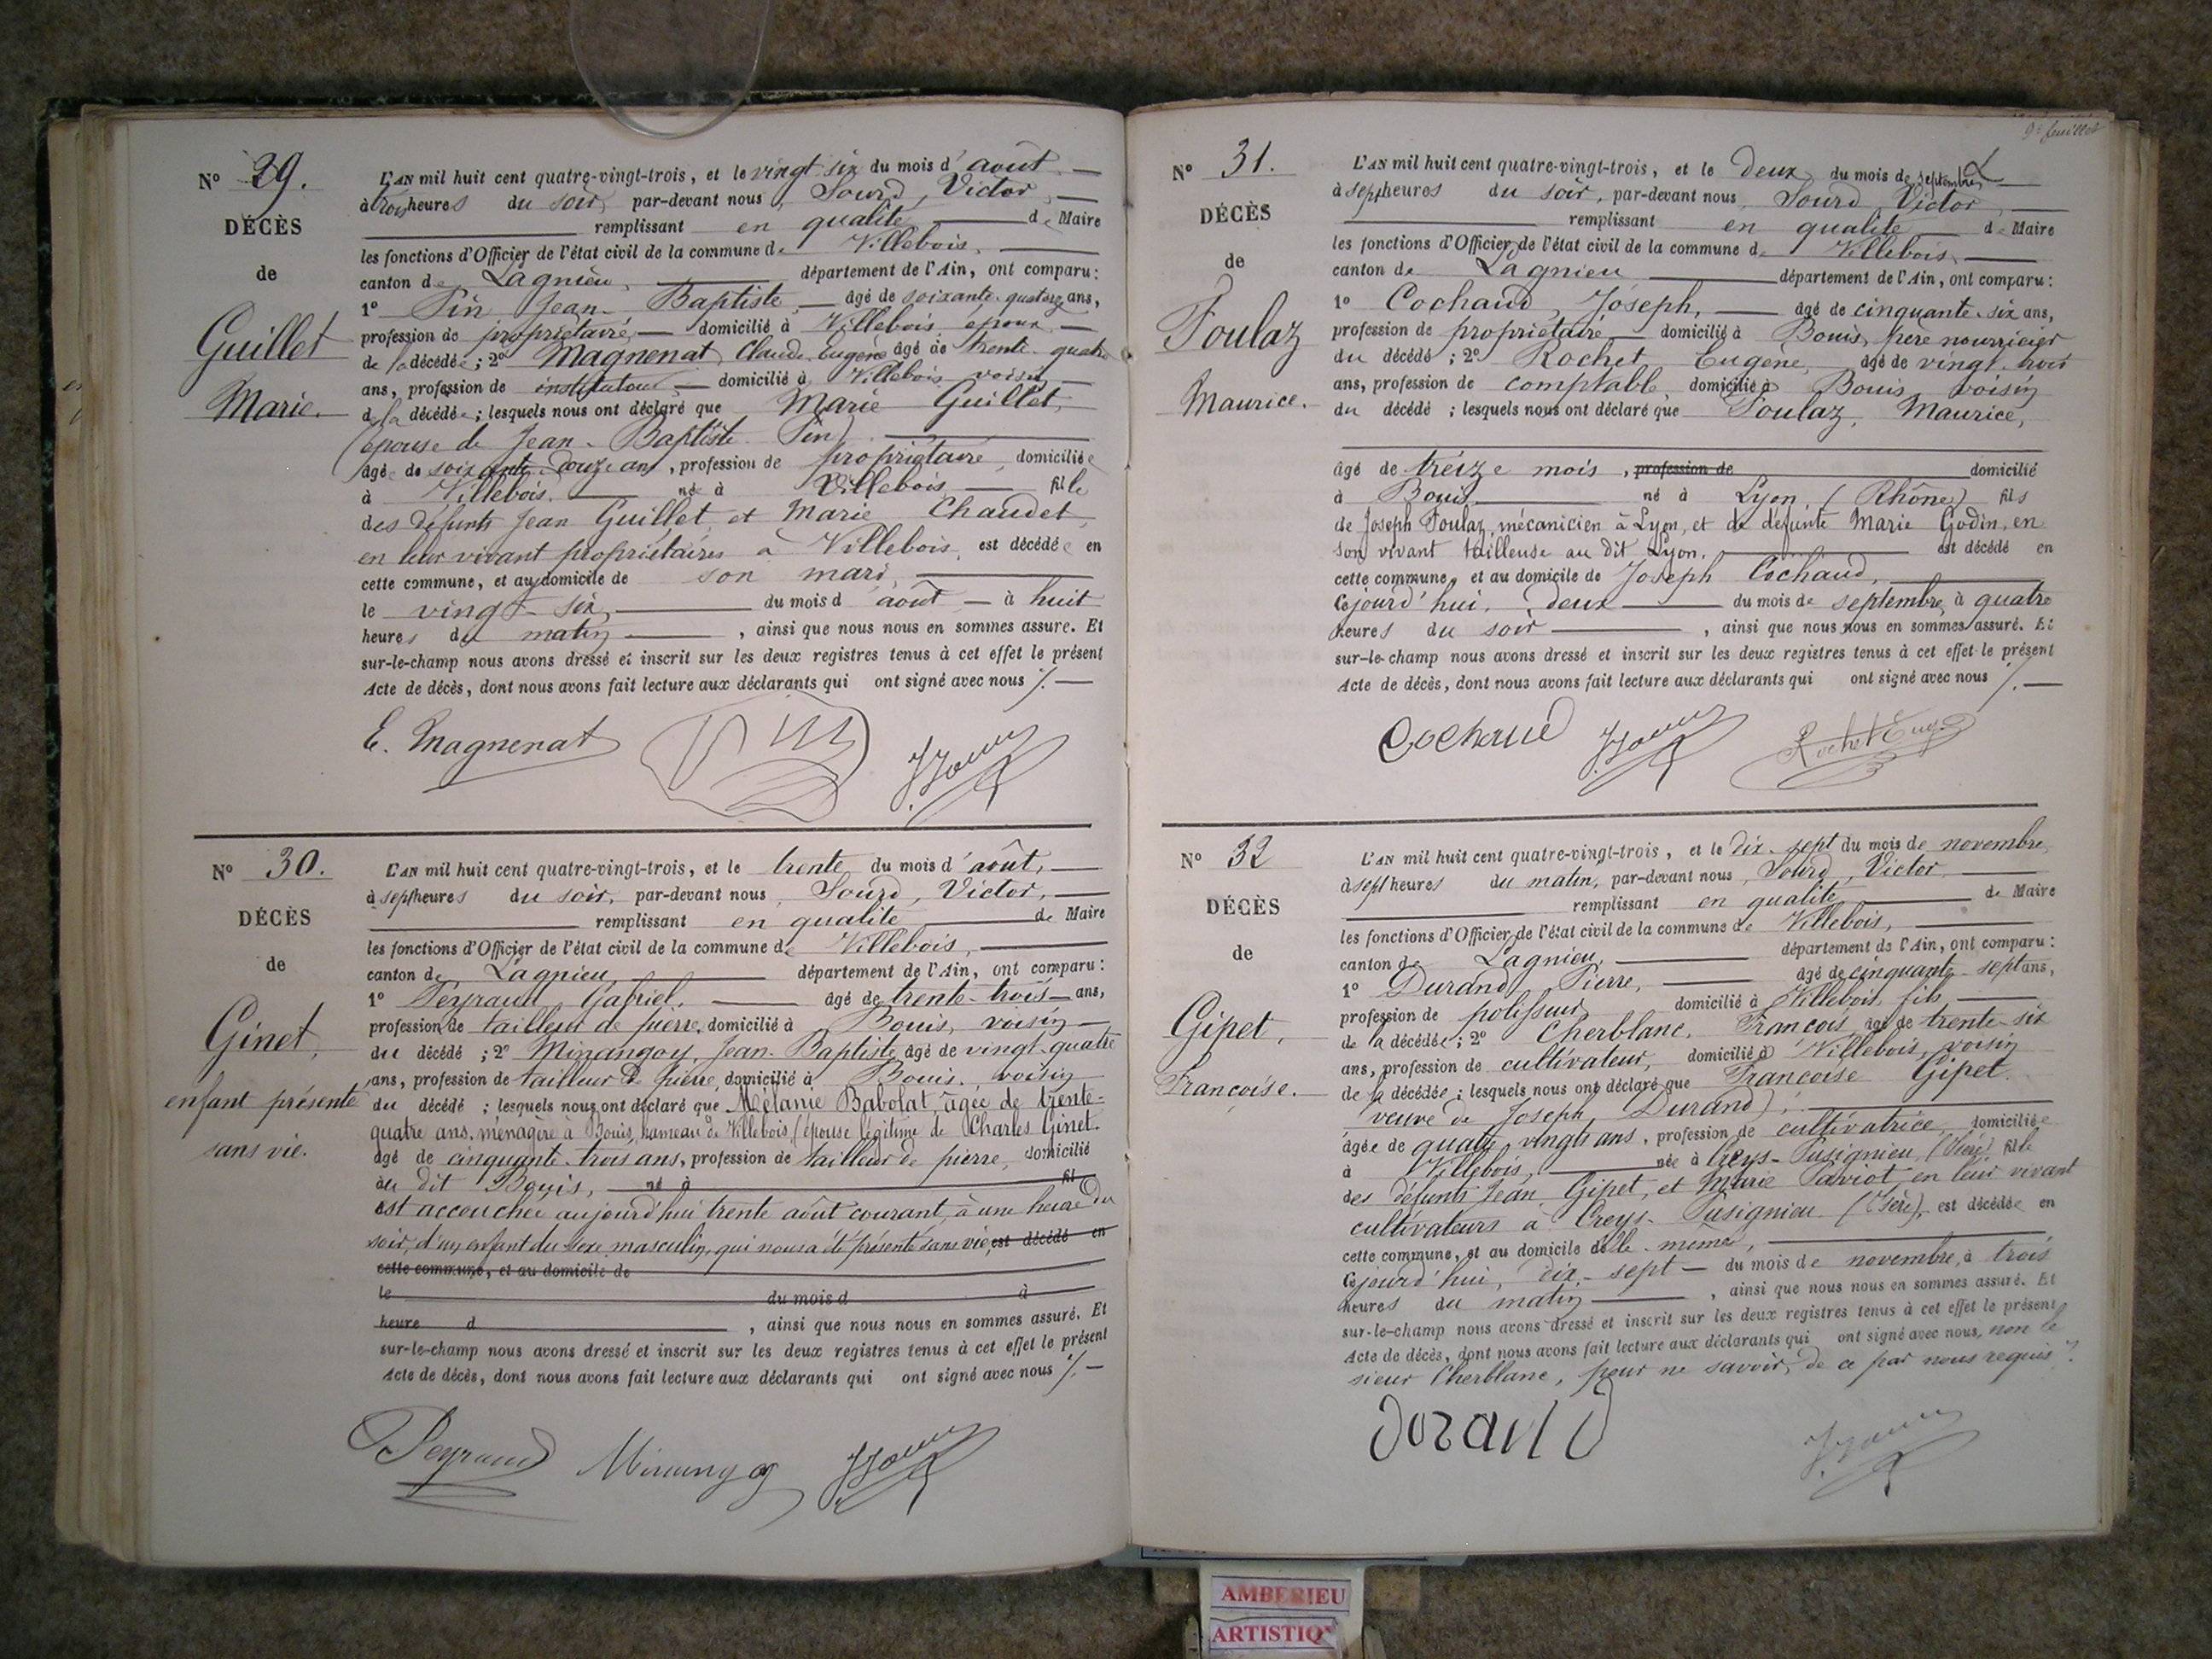 N° 29.
DÉCÈS
de
Guillet
Marie.
L'AN mil huit cent quatre-vingt-trois, et le vingt six du mois d'août.
à trois heures du soir, par-devant nous Sourd, Victor,
remplissant en qualité de Maire
les fonctions d'Officier de l'état civil de la commune de Villebois,
canton de Lagnieu, département de l'Ain, ont comparu:
1° Pin Jean-Baptiste, âgé de soixante-quatorze ans,
profession de propriétaire, domicilié à Villebois, époux
de la décédée; 2° Magnenat, Claude Eugène âgé de trente-quatre
ans, profession de instituteur domicilié à Villebois voisin
de la décédée; lesquels nous ont déclaré que Marie Guillet,
(épouse de Jean-Baptiste Pin)
âgée de soixante-douze ans, profession de propriétaire, domiciliée
à Villebois. né à Villebois fille
des défunts Jean Guillet et Marie Chaudet,
en leur vivant propriétaires à Villebois, est décédée en
cette commune, et au domicile de son mari,
le vingt-six, du mois d'août à huit
heures du matin, ainsi que nous nous en sommes assuré. Et
sur-le-champ nous avons dressé et inscrit sur les deux registres tenus à cet effet le présent
Acte de décès, dont nous avons fait lecture aux déclarants qui ont signé avec nous ./.
E. Magnenat
N° 30.
DÉCÈS
de
Ginet,
enfant présenté
sans vie.
L'AN mil huit cent quatre-vingt-trois, et le trente du mois d'août,
à sept heures du soir, par-devant nous Sourd, Victor,
remplissant en qualité de Maire
les fonctions d'Officier de l'état civil de la commune de Villebois,
canton de Lagnieu, département de l'Ain, ont comparu:
1° Peyraud Gabriel, âgé de trente-trois ans,
profession de tailleur de pierre, domicilié à Bouis, voisin
du décédé; 2° Minangoy, Jean-Baptiste, âgé de vingt-quatre
ans, profession de tailleur de pierre, domicilié à Bouis. voisin
du décédé; lesquels nous ont déclaré que Mélanie Babolat, âgée de trente-
quatre ans, ménagère à Bouis, hameau de Villebois, (épouse légitime de Charles Ginet.
âgé de cinquante-trois ans, profession de tailleur de pierre, domicilié
au dit Bouis, né à fil
est accouchée aujourd'hui trente août courant, à une heure du
soir, d'un enfant du sexe masculin, qui nous a été présenté sans vie, est décédé en
cette commune, et au domicile de
le du mois d à
heure d , ainsi que nous nous en sommes assuré. Et
sur-le-champ nous avons dressé et inscrit sur les deux registres tenus à cet effet le présent
Acte de décès, dont nous avons fait lecture aux déclarants qui ont signé avec nous ./.
Peyraud Minangoy
9e feuillet
N° 31.
DÉCÈS
de
Foulaz
Maurice.
L'AN mil huit cent quatre-vingt-trois, et le deux du mois de septembre
à sept heures du soir, par-devant nous Sourd, Victor,
remplissant en qualité de Maire
les fonctions d'Officier de l'état civil de la commune de Villebois,
canton de Lagnieu département de l'Ain, ont comparu:
1° Cochaud, Joseph, âgé de cinquante-six ans,
profession de propriétaire domicilié à Bouis, père nourricier
du décédé; 2° Rochet Eugène, âgé de vingt-trois
ans, profession de comptable, domicilié à Bouis, voisin
du décédé; lesquels nous ont déclaré que Foulaz, Maurice,
âgé de treize mois, profession de domicilié
à Bouis né à Lyon, (Rhône) fils
de Joseph Foulaz, mécanicien à Lyon, et de défunte Marie Godin, en
son vivant tailleuse au dit Lyon. est décédé en
cette commune, et au domicile de Joseph Cochaud,
cejourd'hui, deux du mois de septembre, à quatre
heures du soir, ainsi que nous nous en sommes assuré. Et
sur-le-champ nous avons dressé et inscrit sur les deux registres tenus à cet effet le présent
Acte de décès, dont nous avons fait lecture aux déclarants qui ont signé avec nous ./.
Cochaud Rochet Eug.
N° 32
DÉCÈS
de
Gipet,
Françoise.
L'AN mil huit cent quatre-vingt-trois, et le dix-sept du mois de novembre,
à sept heures du matin, par-devant nous, Sourd, Victor,
remplissant en qualité de Maire
les fonctions d'Officier de l'état civil de la commune de Villebois,
canton de Lagnieu, département de l'Ain, ont comparu:
1° Durand Pierre, âgé de cinquante-sept ans,
profession de polisseur domicilié à Villebois, fils
de la décédée; 2° Cherblanc, François, âgé de trente-six
ans, profession de cultivateur, domicilié à Villebois, voisin
de la décédée; lesquels nous ont déclaré que Françoise Gipet.
veuve de Joseph Durand),
âgée de quatre-vingts ans, profession de cultivatrice, domiciliée
à Villebois, née à Creys-Pusignieu, (Isère) fille
des défunts Jean Gipet, et Marie Paviot, en leur vivant
cultivateurs à Creys-Pusignieu (Isère), est décédée en
cette commune, et au domicile d'elle-même,
cejourd'hui, dix-sept du mois de novembre, à trois
heures du matin, ainsi que nous nous en sommes assuré. Et
sur-le-champ nous avons dressé et inscrit sur les deux registres tenus à cet effet le présent
Acte de décès, dont nous avons fait lecture aux déclarants qui ont signé avec nous, non le
sieur Cherblanc, pour ne savoir, de ce par nous requis ./.
Dorand
AMBERIEU
ARTISTIQ